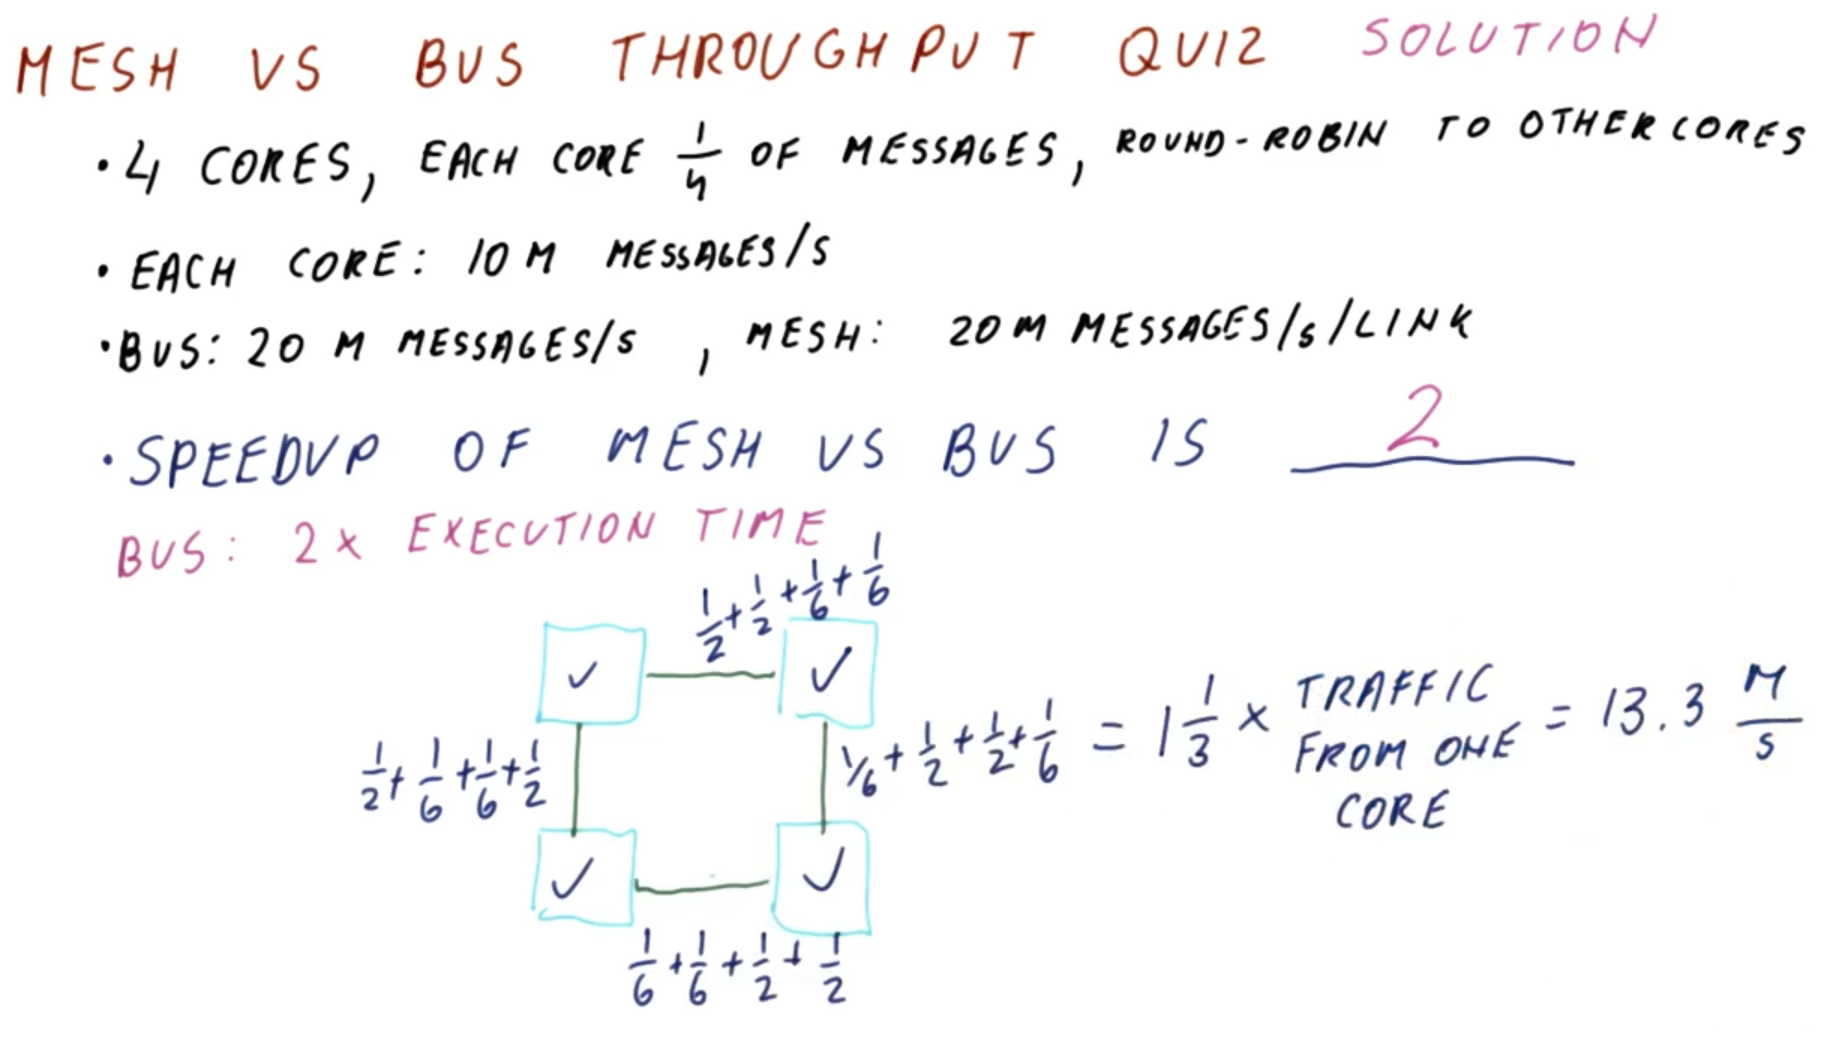 MESH VS BUS THROUGHPUT QUIZ SOLUTION
• 4 CORES, EACH CORE 1/4 OF MESSAGES, ROUND-ROBIN TO OTHER CORES
• EACH CORE: 10 M MESSAGES/S
• BUS: 20 M MESSAGES/S, MESH: 20 M MESSAGES/s/LINK
• SPEEDUP OF MESH VS BUS IS 2
BUS: 2x EXECUTION TIME
1/2 + 1/2 + 1/6 + 1/6
1/2 + 1/6 + 1/6 + 1/2
1/6 + 1/2 + 1/2 + 1/6 = 1 1/3 x TRAFFIC FROM ONE CORE = 13.3 M/s
1/6 + 1/6 + 1/2 + 1/2